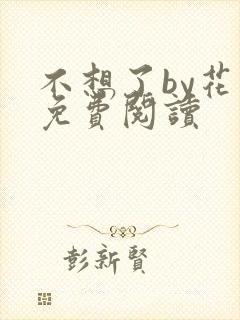 不想了by花
免費閱讀
彭新賢